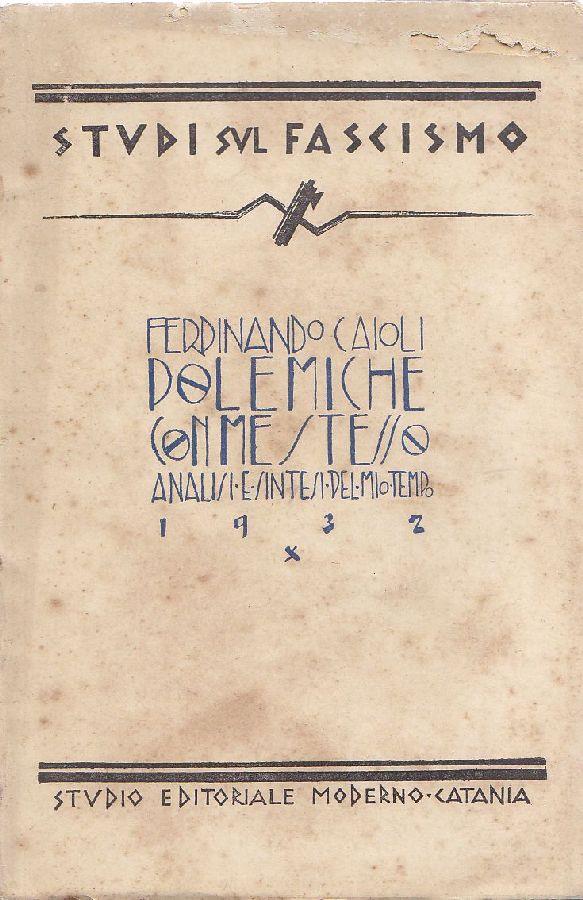 STVDI SVL FASCISMO
FERDINANDO CAIOLI
POLEMICHE
CON ME STESSO
ANALISI·E·SINTESI·DEL·MIO·TEMPO
1932
X
STVDIO EDITORIALE MODERNO·CATANIA